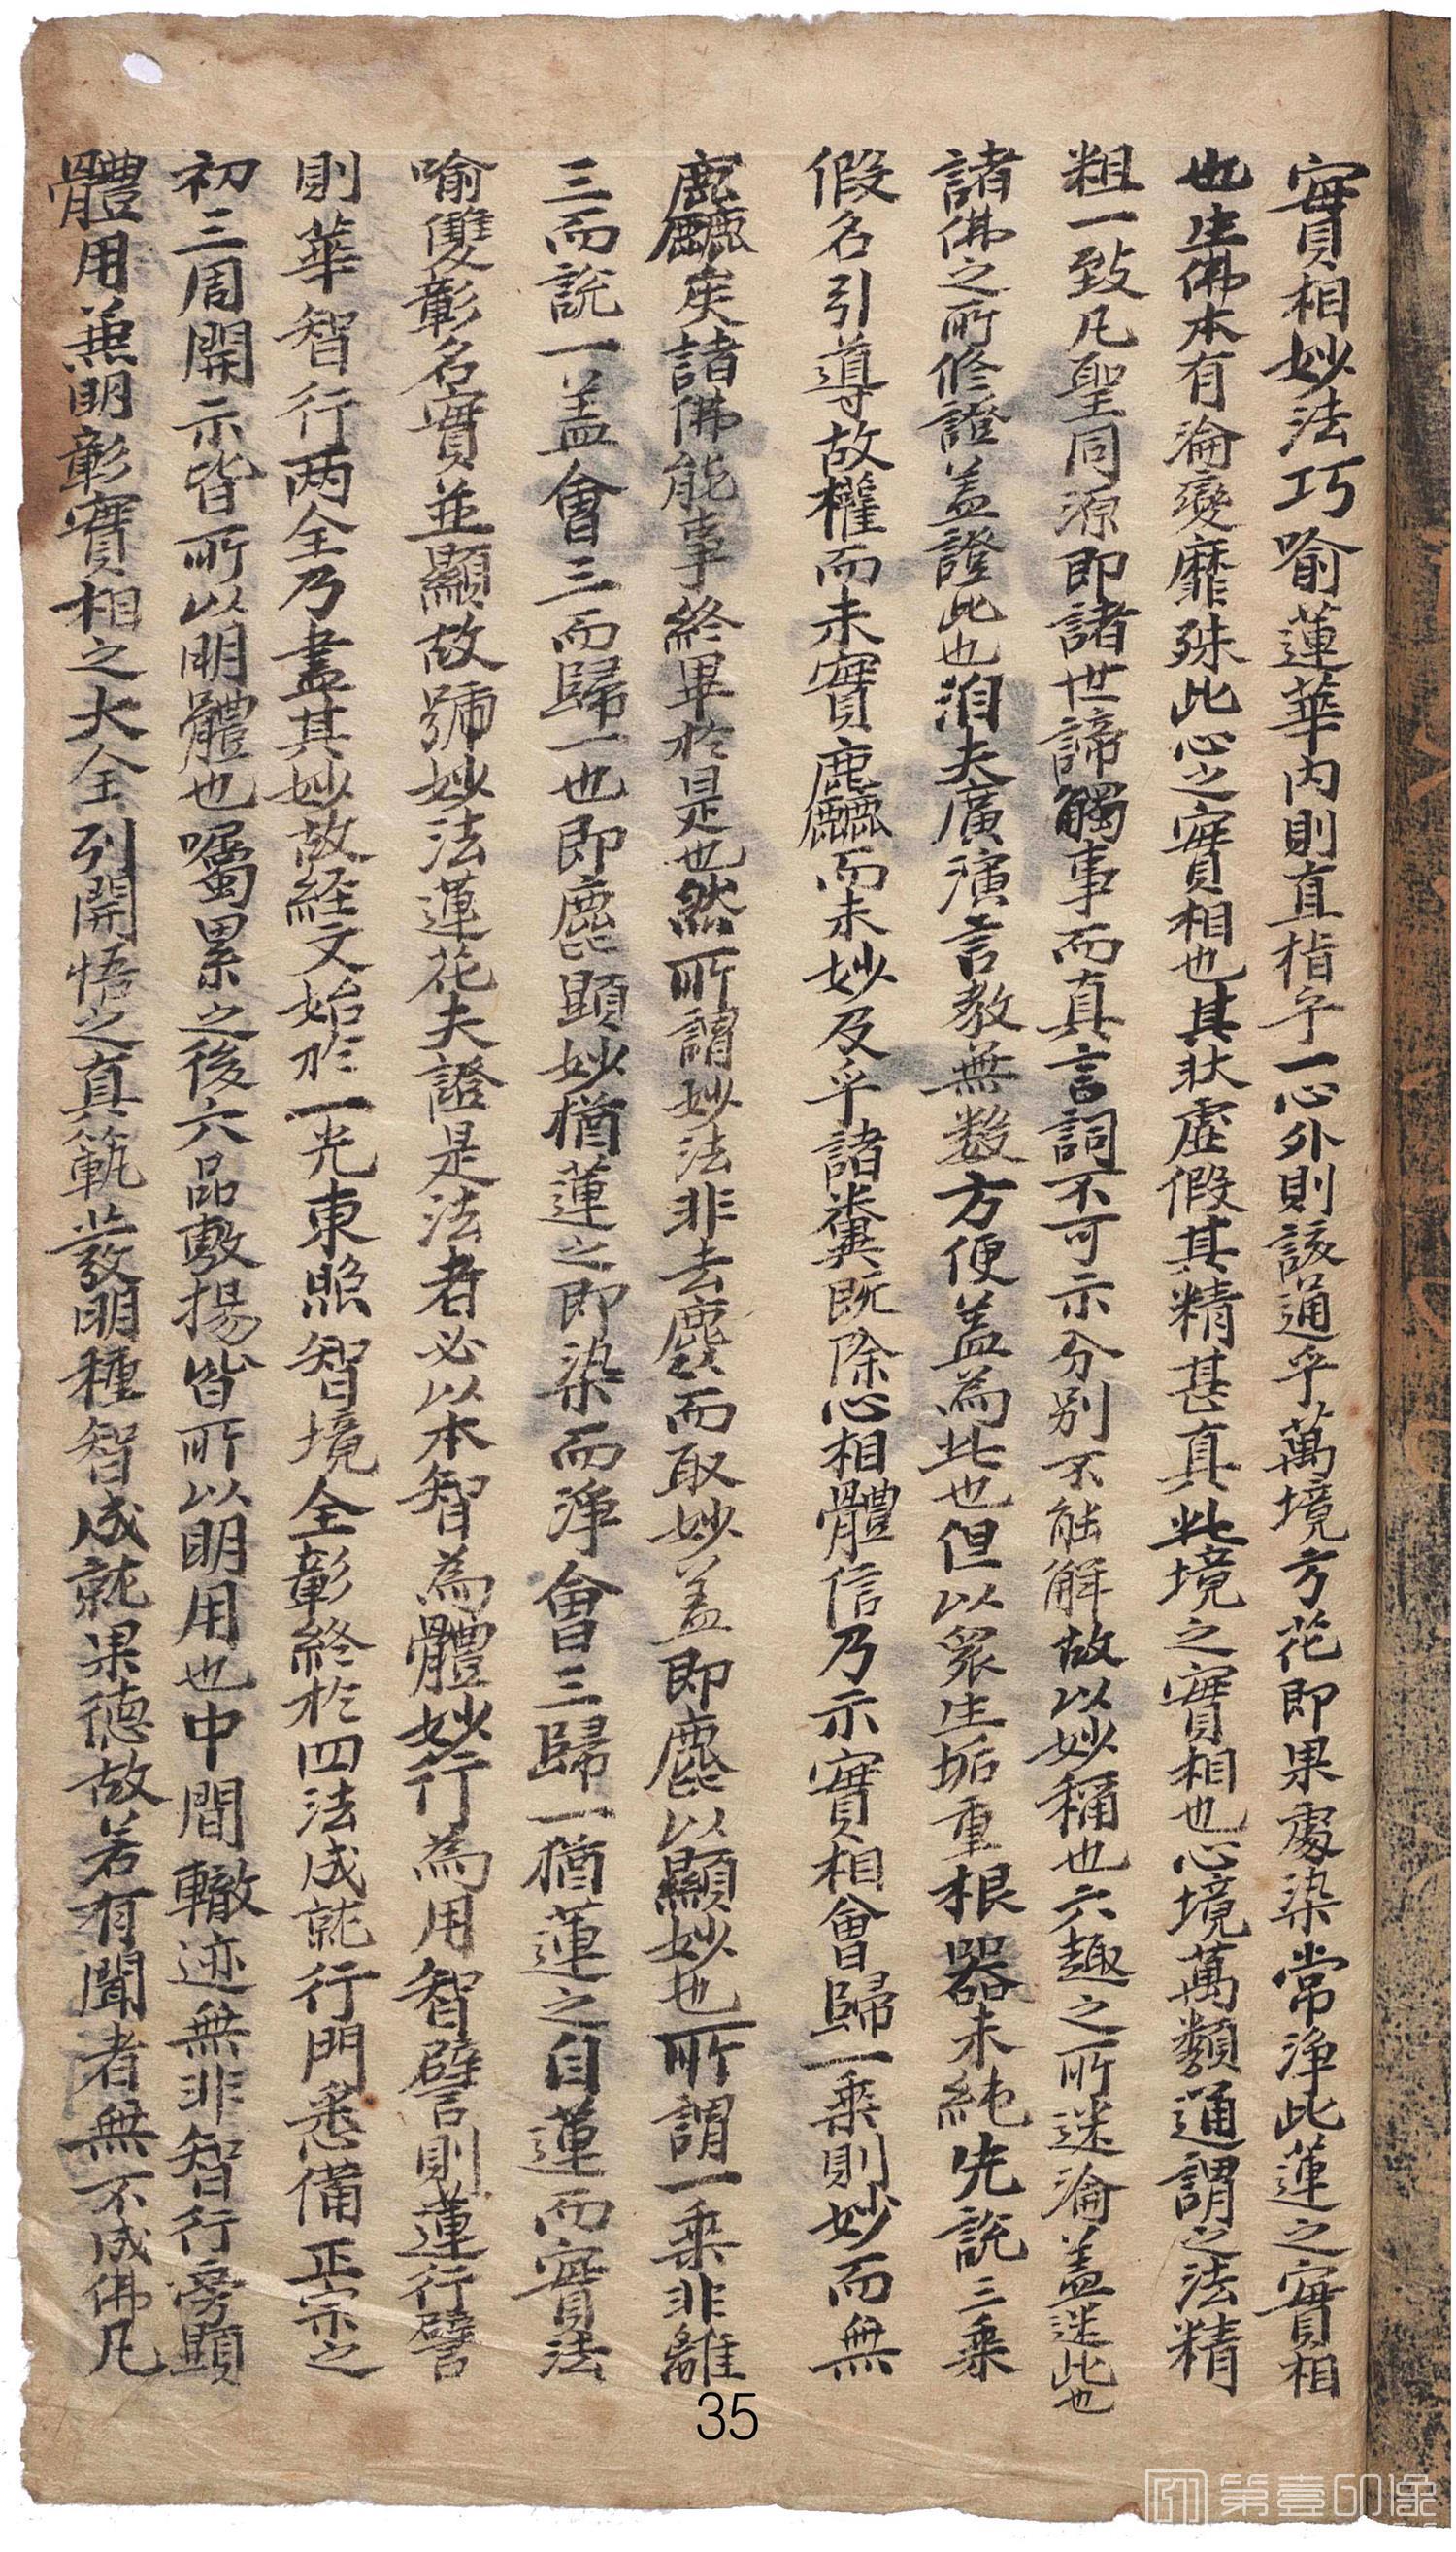 實相妙法巧喻蓮華內則直指乎一心外則該通乎萬境方花即果處染常淨此蓮之實相
也生佛本有淪變靡殊此心之實相也其狀虛假其精甚真此境之實相也心境萬類通謂之法精
粗一致凡聖同源即諸世諦觸事而真言詞不可示分別不能解故以妙稱也六趣之所迷淪盖迷此也
諸佛之所修證盖證此也洎夫廣演言教無數方便盖為此也但以衆生垢重根器未純先說三乘
假名引導故權而未實麤而未妙及乎諸糞既除心相體信乃示實相會歸一乘則妙而無
麤矣諸佛能事終畢於是也然所謂妙法非去麤而取妙盖即麤以顯妙也所謂一乘非離
三而說一盖會三而歸一也即麤顯妙猶蓮之即染而淨會三歸一猶蓮之自蓮而實法
喻雙彰名實並顯故號妙法蓮花夫證是法者必以本智為體妙行為用智譬則蓮行譬
則華智行两全乃盡其妙故経文始於一光東照智境全彰終於四法成就行門悉備正宗之
初三周開示皆所以明體也囑累之後六品敷揚皆所以明用也中間轍迹無非智行旁顯
體用兼明彰實相之大全列開悟之真範發明種智成就果德故若有聞者無不成佛凡
35
第壹印像